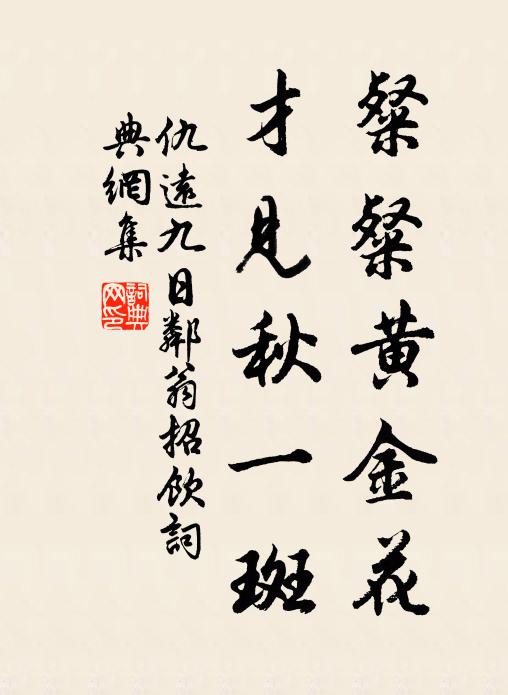 粲粲黄金花
才見秋一斑
仇遠九日鄰翁招飲詞
典網集
詞典网印